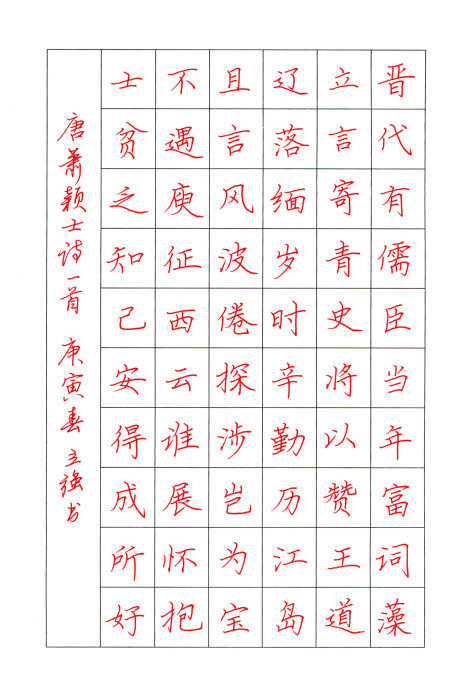 晋代有儒臣当年富词藻
立言寄青史将以赞王道
辽落缅岁时辛勤历江岛
且言风波倦探涉岂为宝
不遇庾征西云谁展怀抱
士贫乏知己安得成所好
唐萧颖士诗一首 庚寅春 立强书